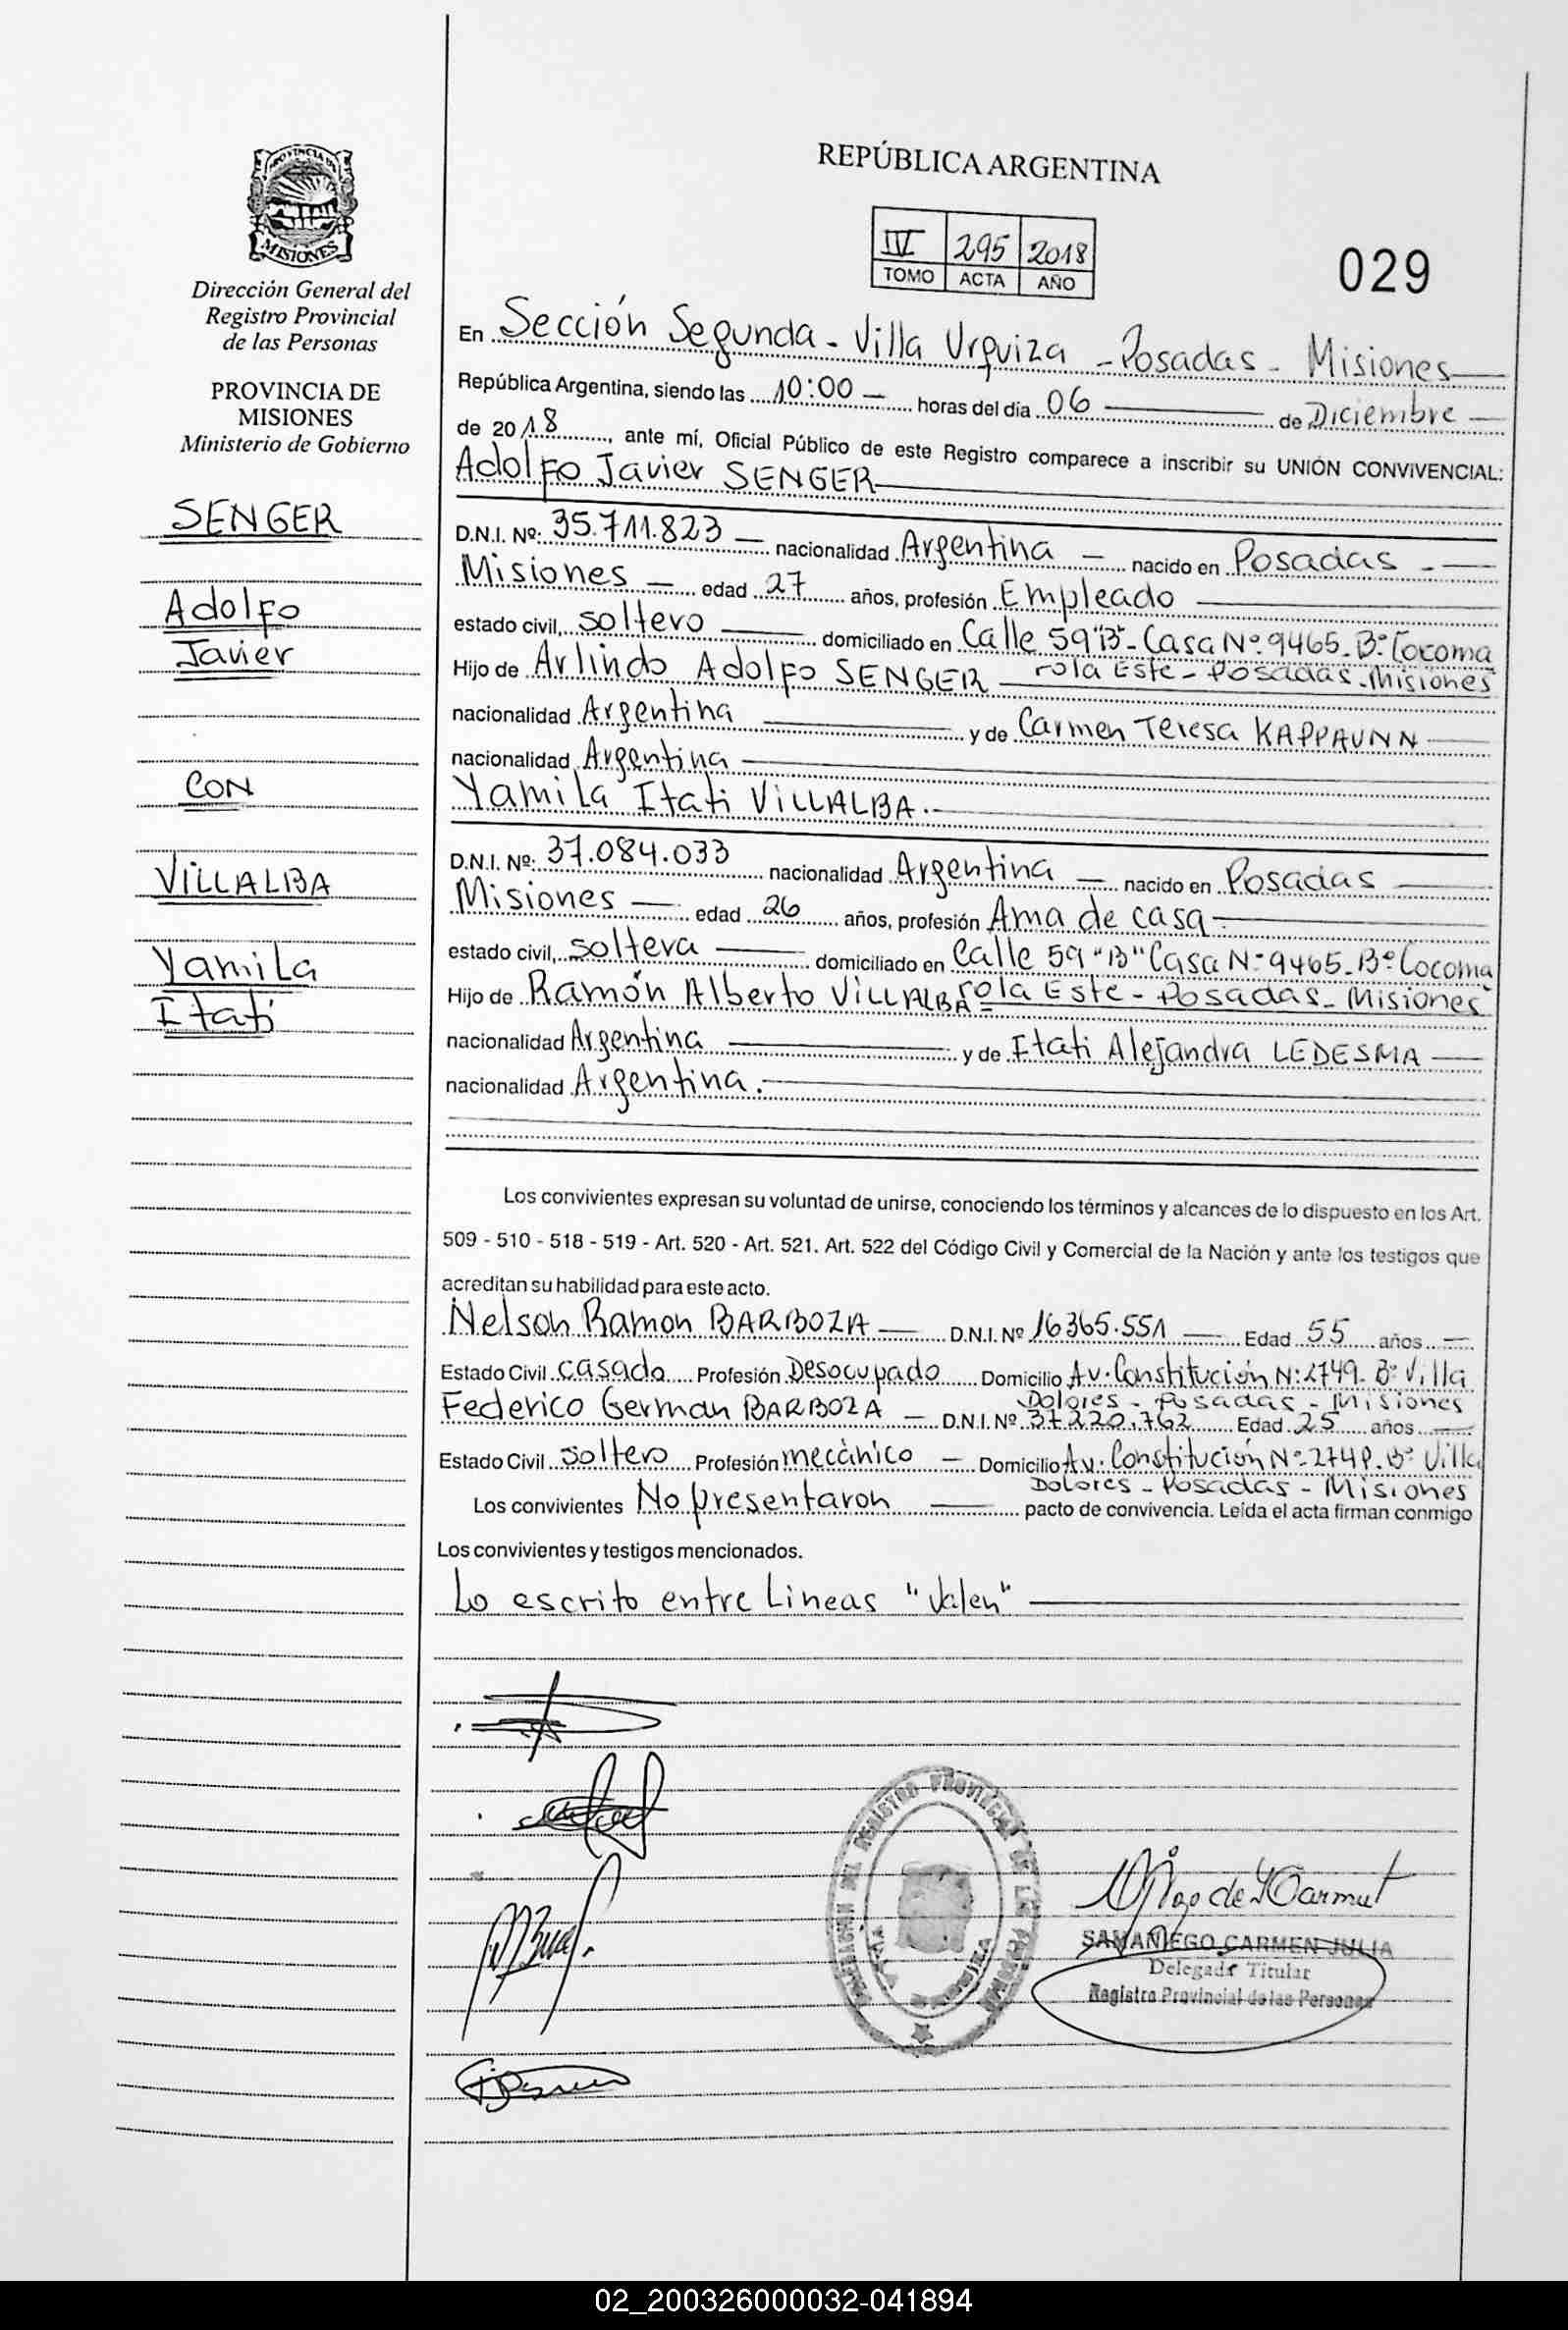 PROVINCIA DE
MISIONES
Dirección General del
Registro Provincial
de las Personas
PROVINCIA DE
MISIONES
Ministerio de Gobierno
SENGER
Adolfo
Javier
CON
VILLALBA
Yamila
Itatí
REPÚBLICA ARGENTINA
IV 295 2018
TOMO ACTA AÑO
029
En Sección Segunda - Villa Urquiza - Posadas - Misiones
República Argentina, siendo las 10:00 horas del día 06 de Diciembre
de 2018, ante mí, Oficial Público de este Registro comparece a inscribir su UNIÓN CONVIVENCIAL:
Adolfo Javier SENGER
D.N.I. Nº: 35.711.823 nacionalidad Argentina nacido en Posadas -
Misiones edad 27 años, profesión Empleado
estado civil, soltero domiciliado en Calle 59"B" - Casa Nº 9465 - Bº Cocoma
rola Este - Posadas - Misiones
Hijo de Arlindo Adolfo SENGER
nacionalidad Argentina y de Carmen Teresa KAPPAUNN
nacionalidad Argentina
Yamila Itati VILLALBA.
D.N.I. Nº: 37.084.033 nacionalidad Argentina nacido en Posadas
Misiones edad 26 años, profesión Ama de casa
estado civil, soltera domiciliado en Calle 59 "B" Casa Nº 9465 - Bº Cocoma
rola Este - Posadas - Misiones
Hijo de Ramón Alberto VILLALBA
nacionalidad Argentina y de Itati Alejandra LEDESMA
nacionalidad Argentina.
Los convivientes expresan su voluntad de unirse, conociendo los términos y alcances de lo dispuesto en los Art.
509 - 510 - 518 - 519 - Art. 520 - Art. 521. Art. 522 del Código Civil y Comercial de la Nación y ante los testigos que
acreditan su habilidad para este acto.
Nelson Ramon BARBOZA D.N.I. Nº 16365.551 Edad 55 años
Estado Civil casado Profesión Desocupado Domicilio Av. Constitución Nº 2749 - Bº Villa
Dolores - Posadas - Misiones
Federico German BARBOZA D.N.I. Nº 37.220.762 Edad 25 años
Estado Civil soltero Profesión mecánico Domicilio Av. Constitución Nº 2749 - Bº Villa
Dolores - Posadas - Misiones
Los convivientes No presentaron pacto de convivencia. Leída el acta firman conmigo
Los convivientes y testigos mencionados.
Lo escrito entre Lineas "Valen"
DELEGACION DEL REGISTRO PROVINCIAL DE LAS PERSONAS
VILLA URQUIZA
SAMANIEGO CARMEN JULIA
Delegada Titular
Registro Provincial de las Personas
02_200326000032-041894